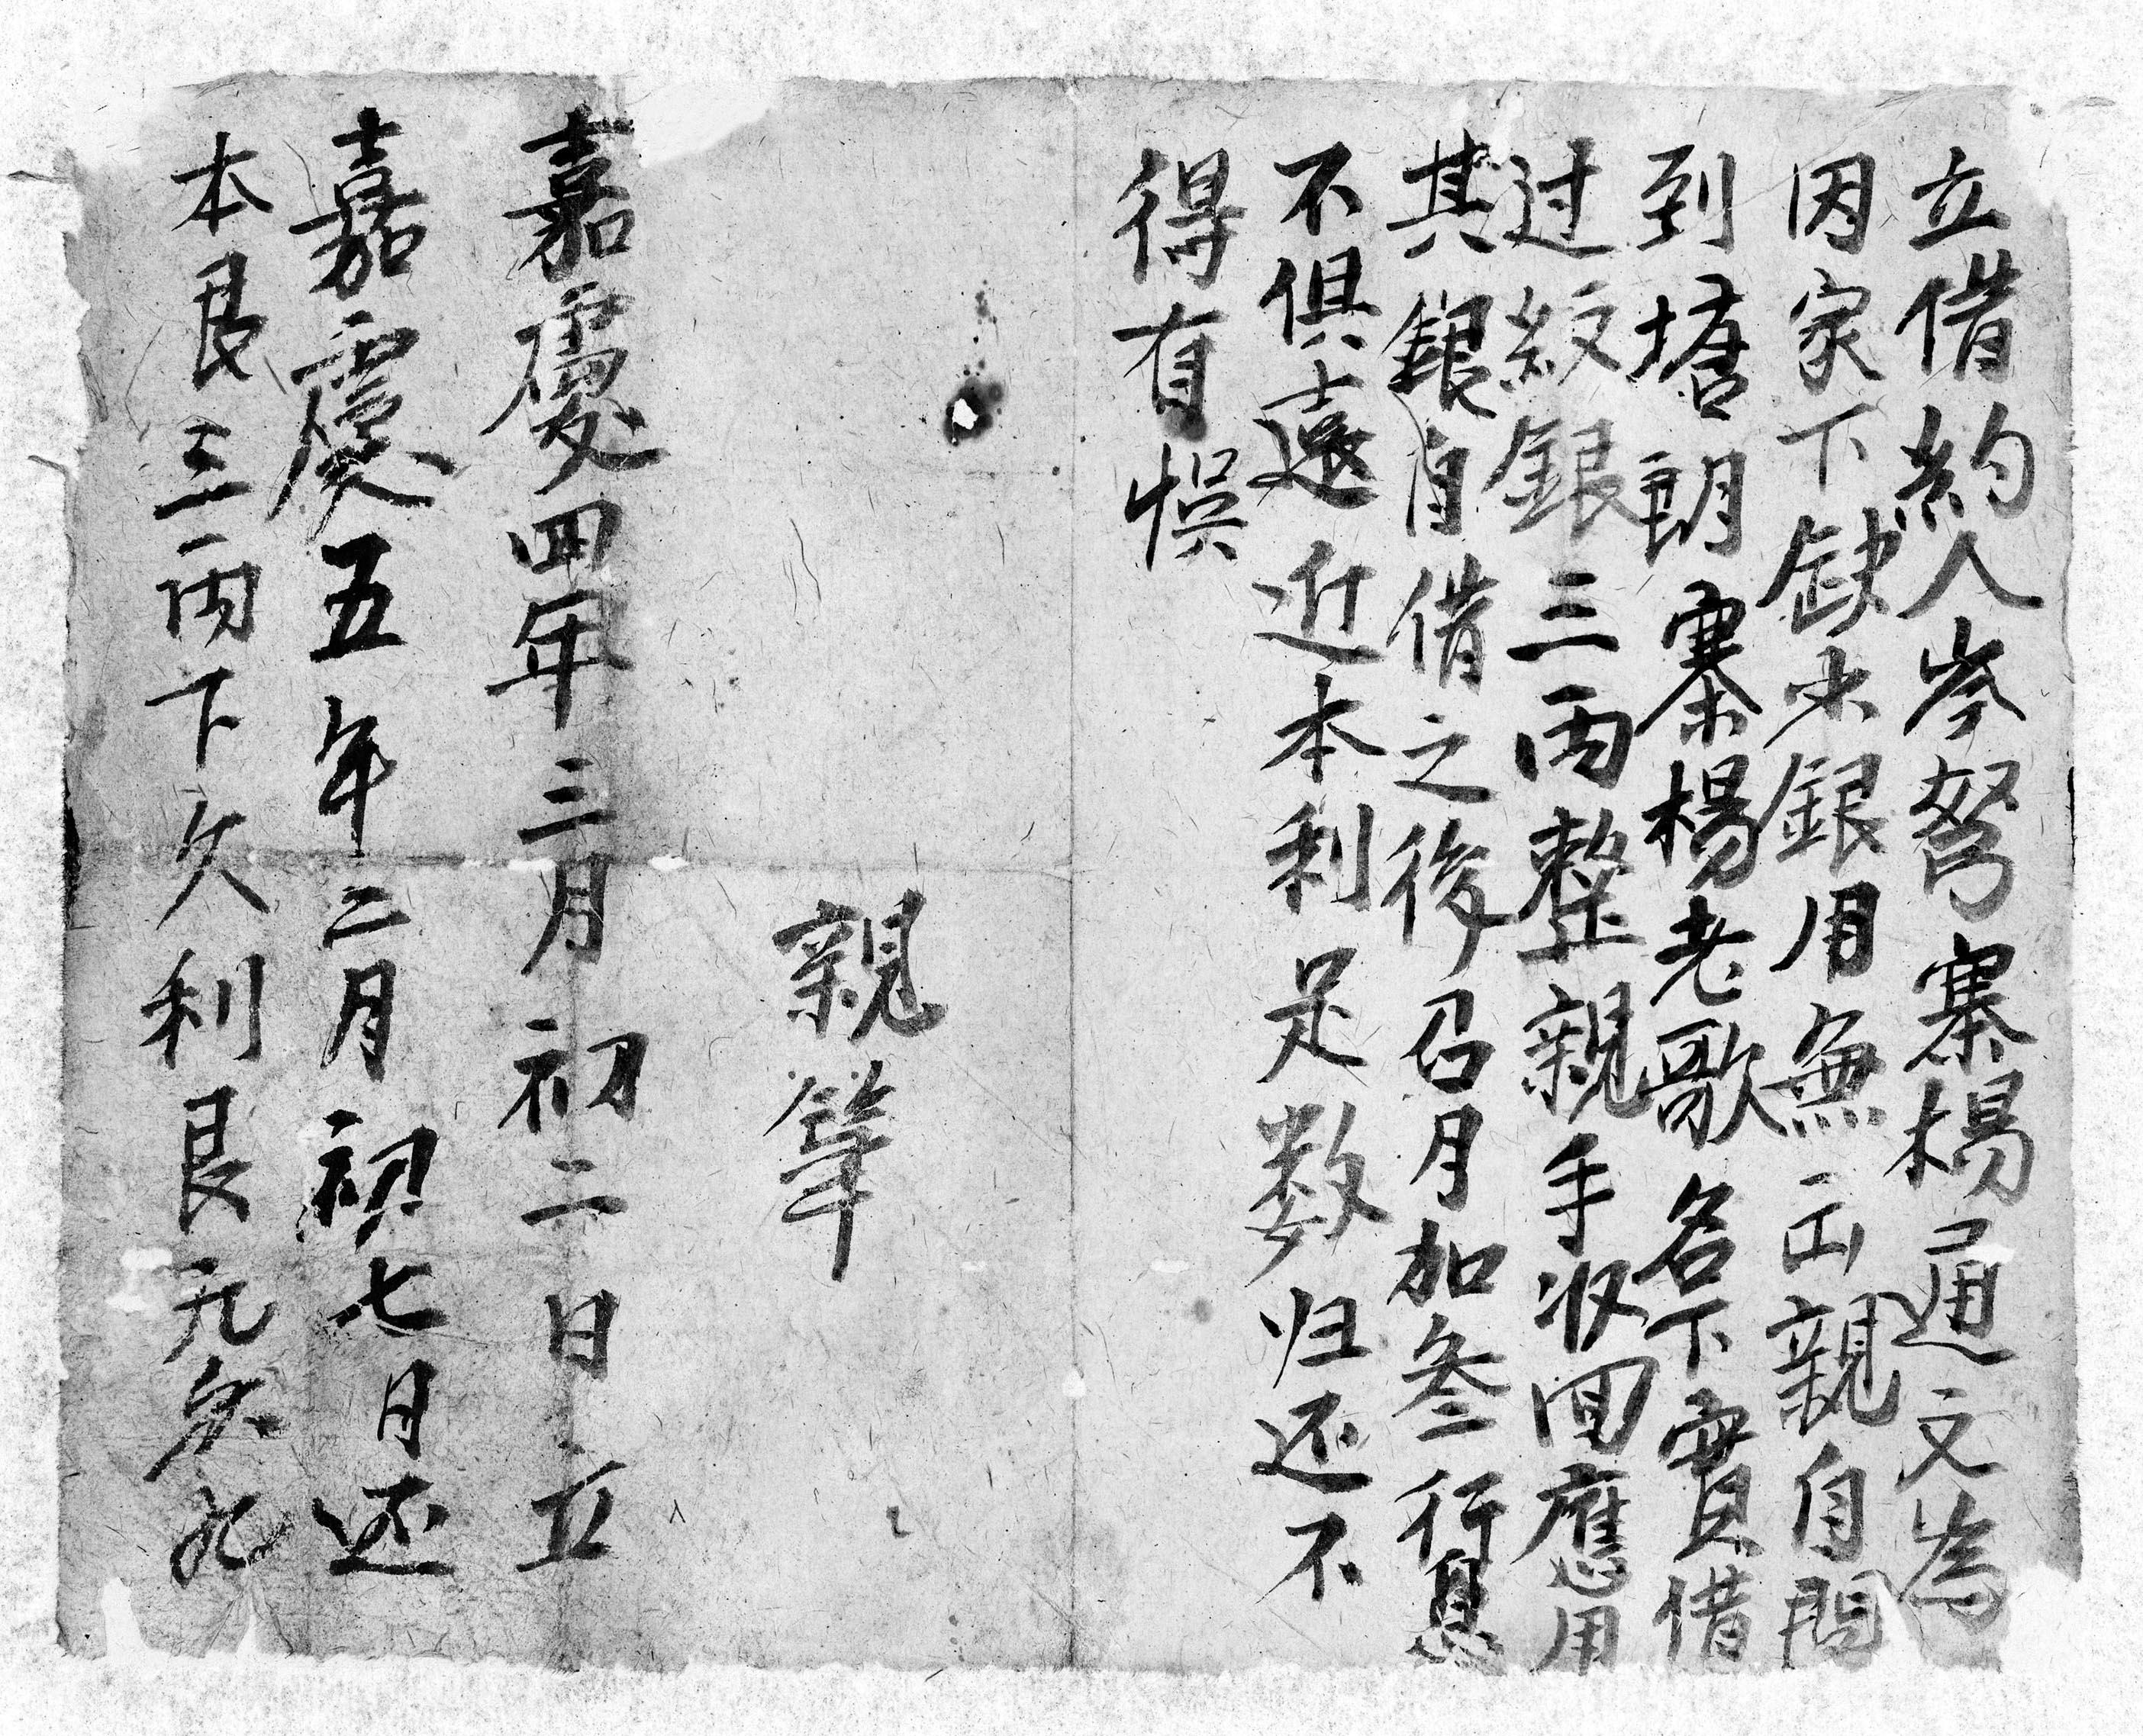 立借約人岑努寨楊通文為
因家下缺少銀用無出親自問
到塘朗寨楊老歌名下實借
过紋銀三両整親手收回應用
其銀自借之後召月加叁行息
不俱遠近本利足数归还不
得有悮
親筆
嘉慶四年三月初二日立
嘉慶五年二月初七日还
本艮三両下欠利艮元